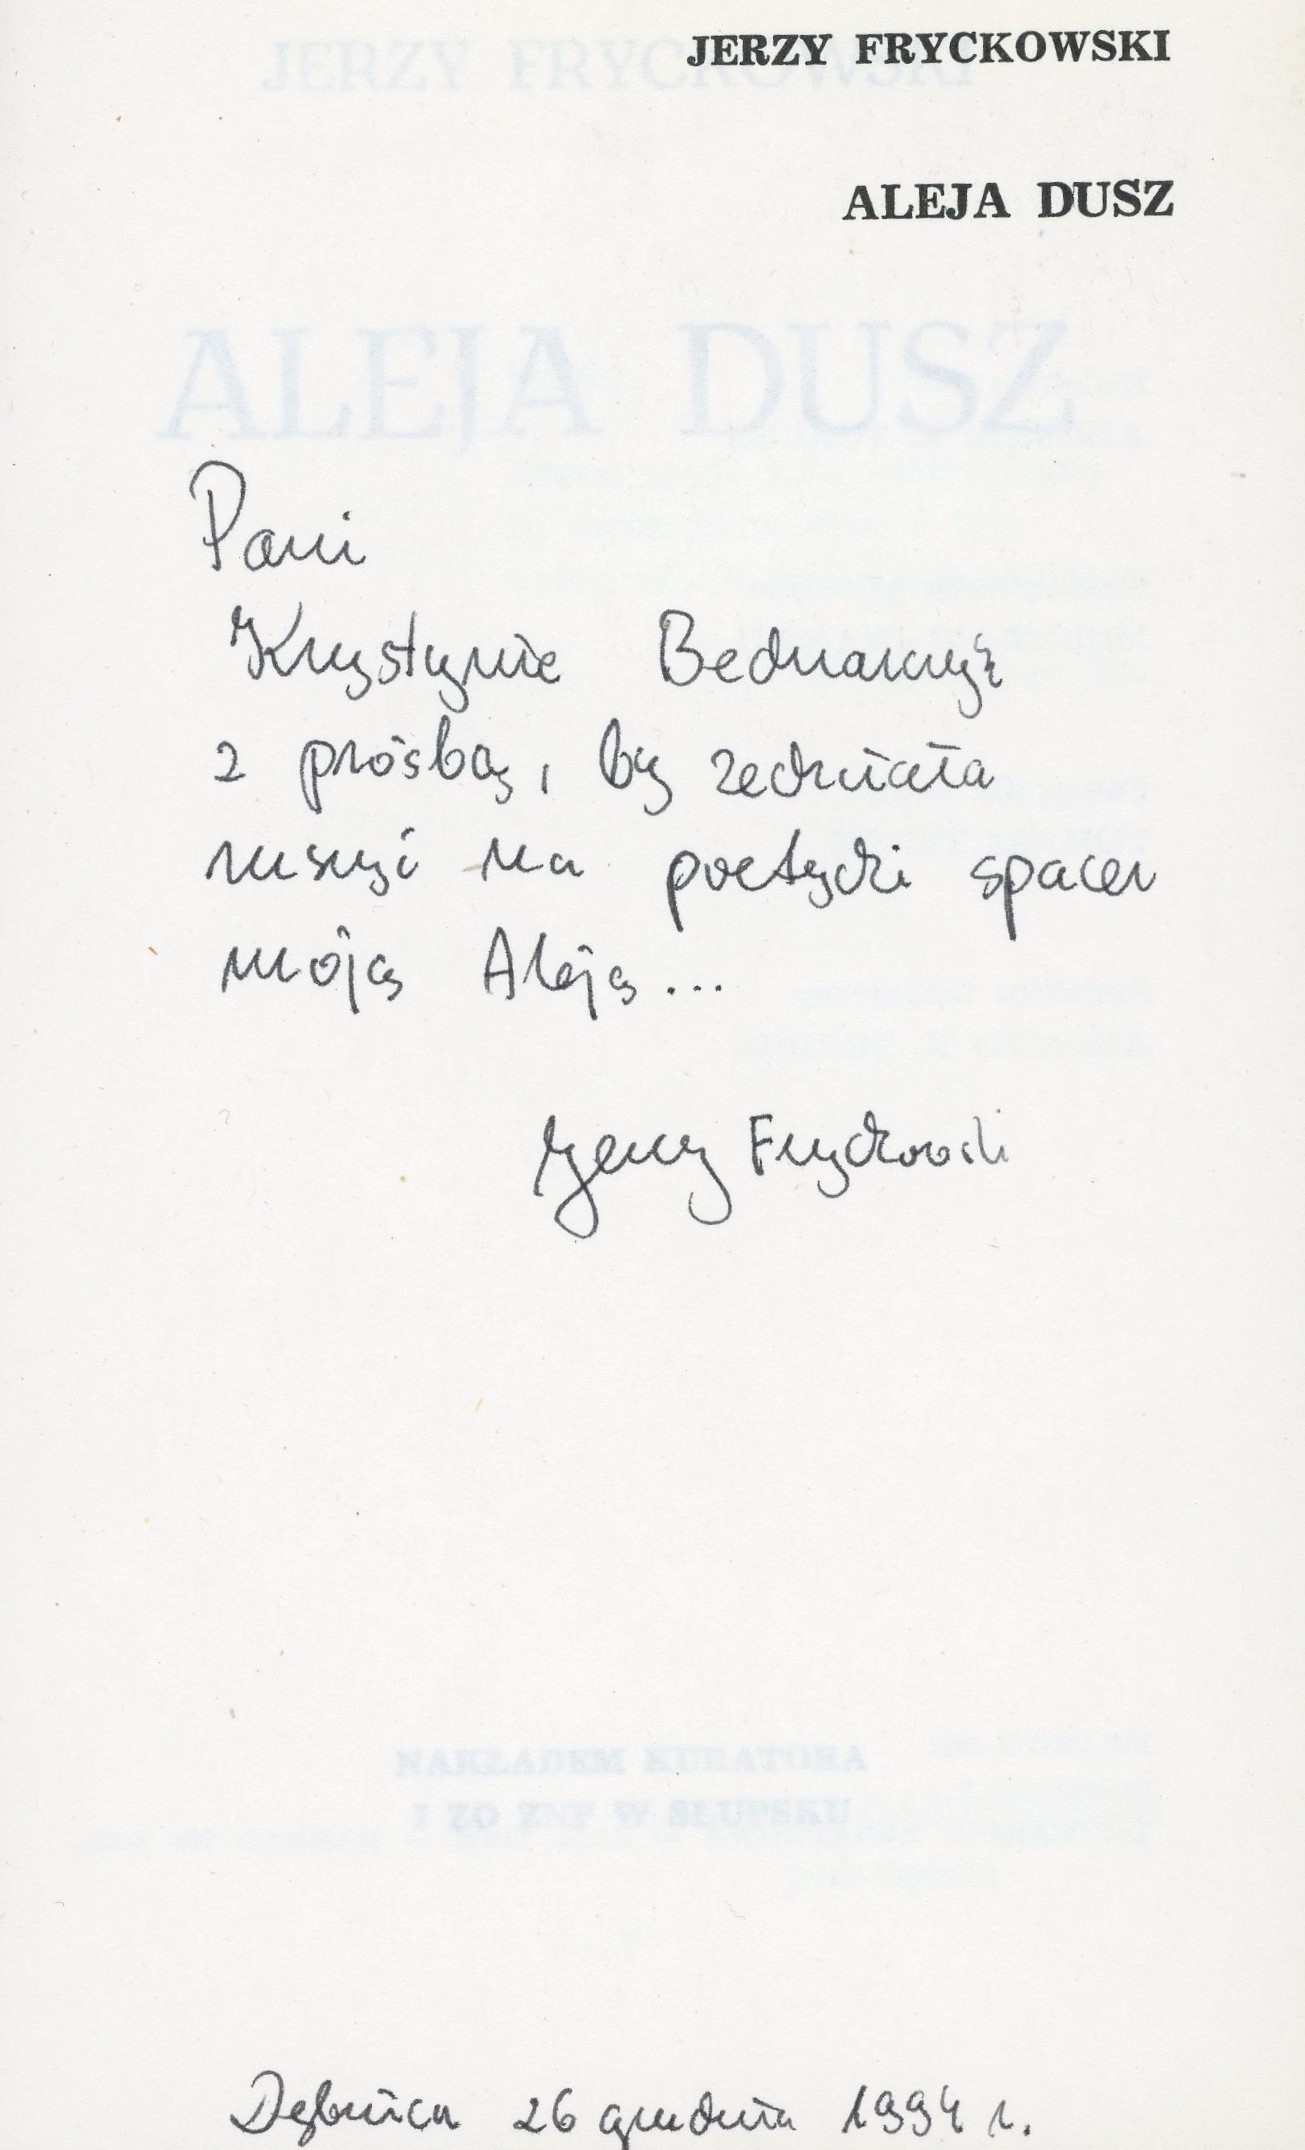 JERZY FRYCKOWSKI
ALEJA DUSZ
Pani
Krystynie
z prośbą, by zechciała
ruszyć na poetycki spacer
moją Aleją...
Jerzy Fryckowski
NAKŁADEM KURATORA
I ZO ZNP W SŁUPSKU
Dębnica 26 grudnia 1994 r.